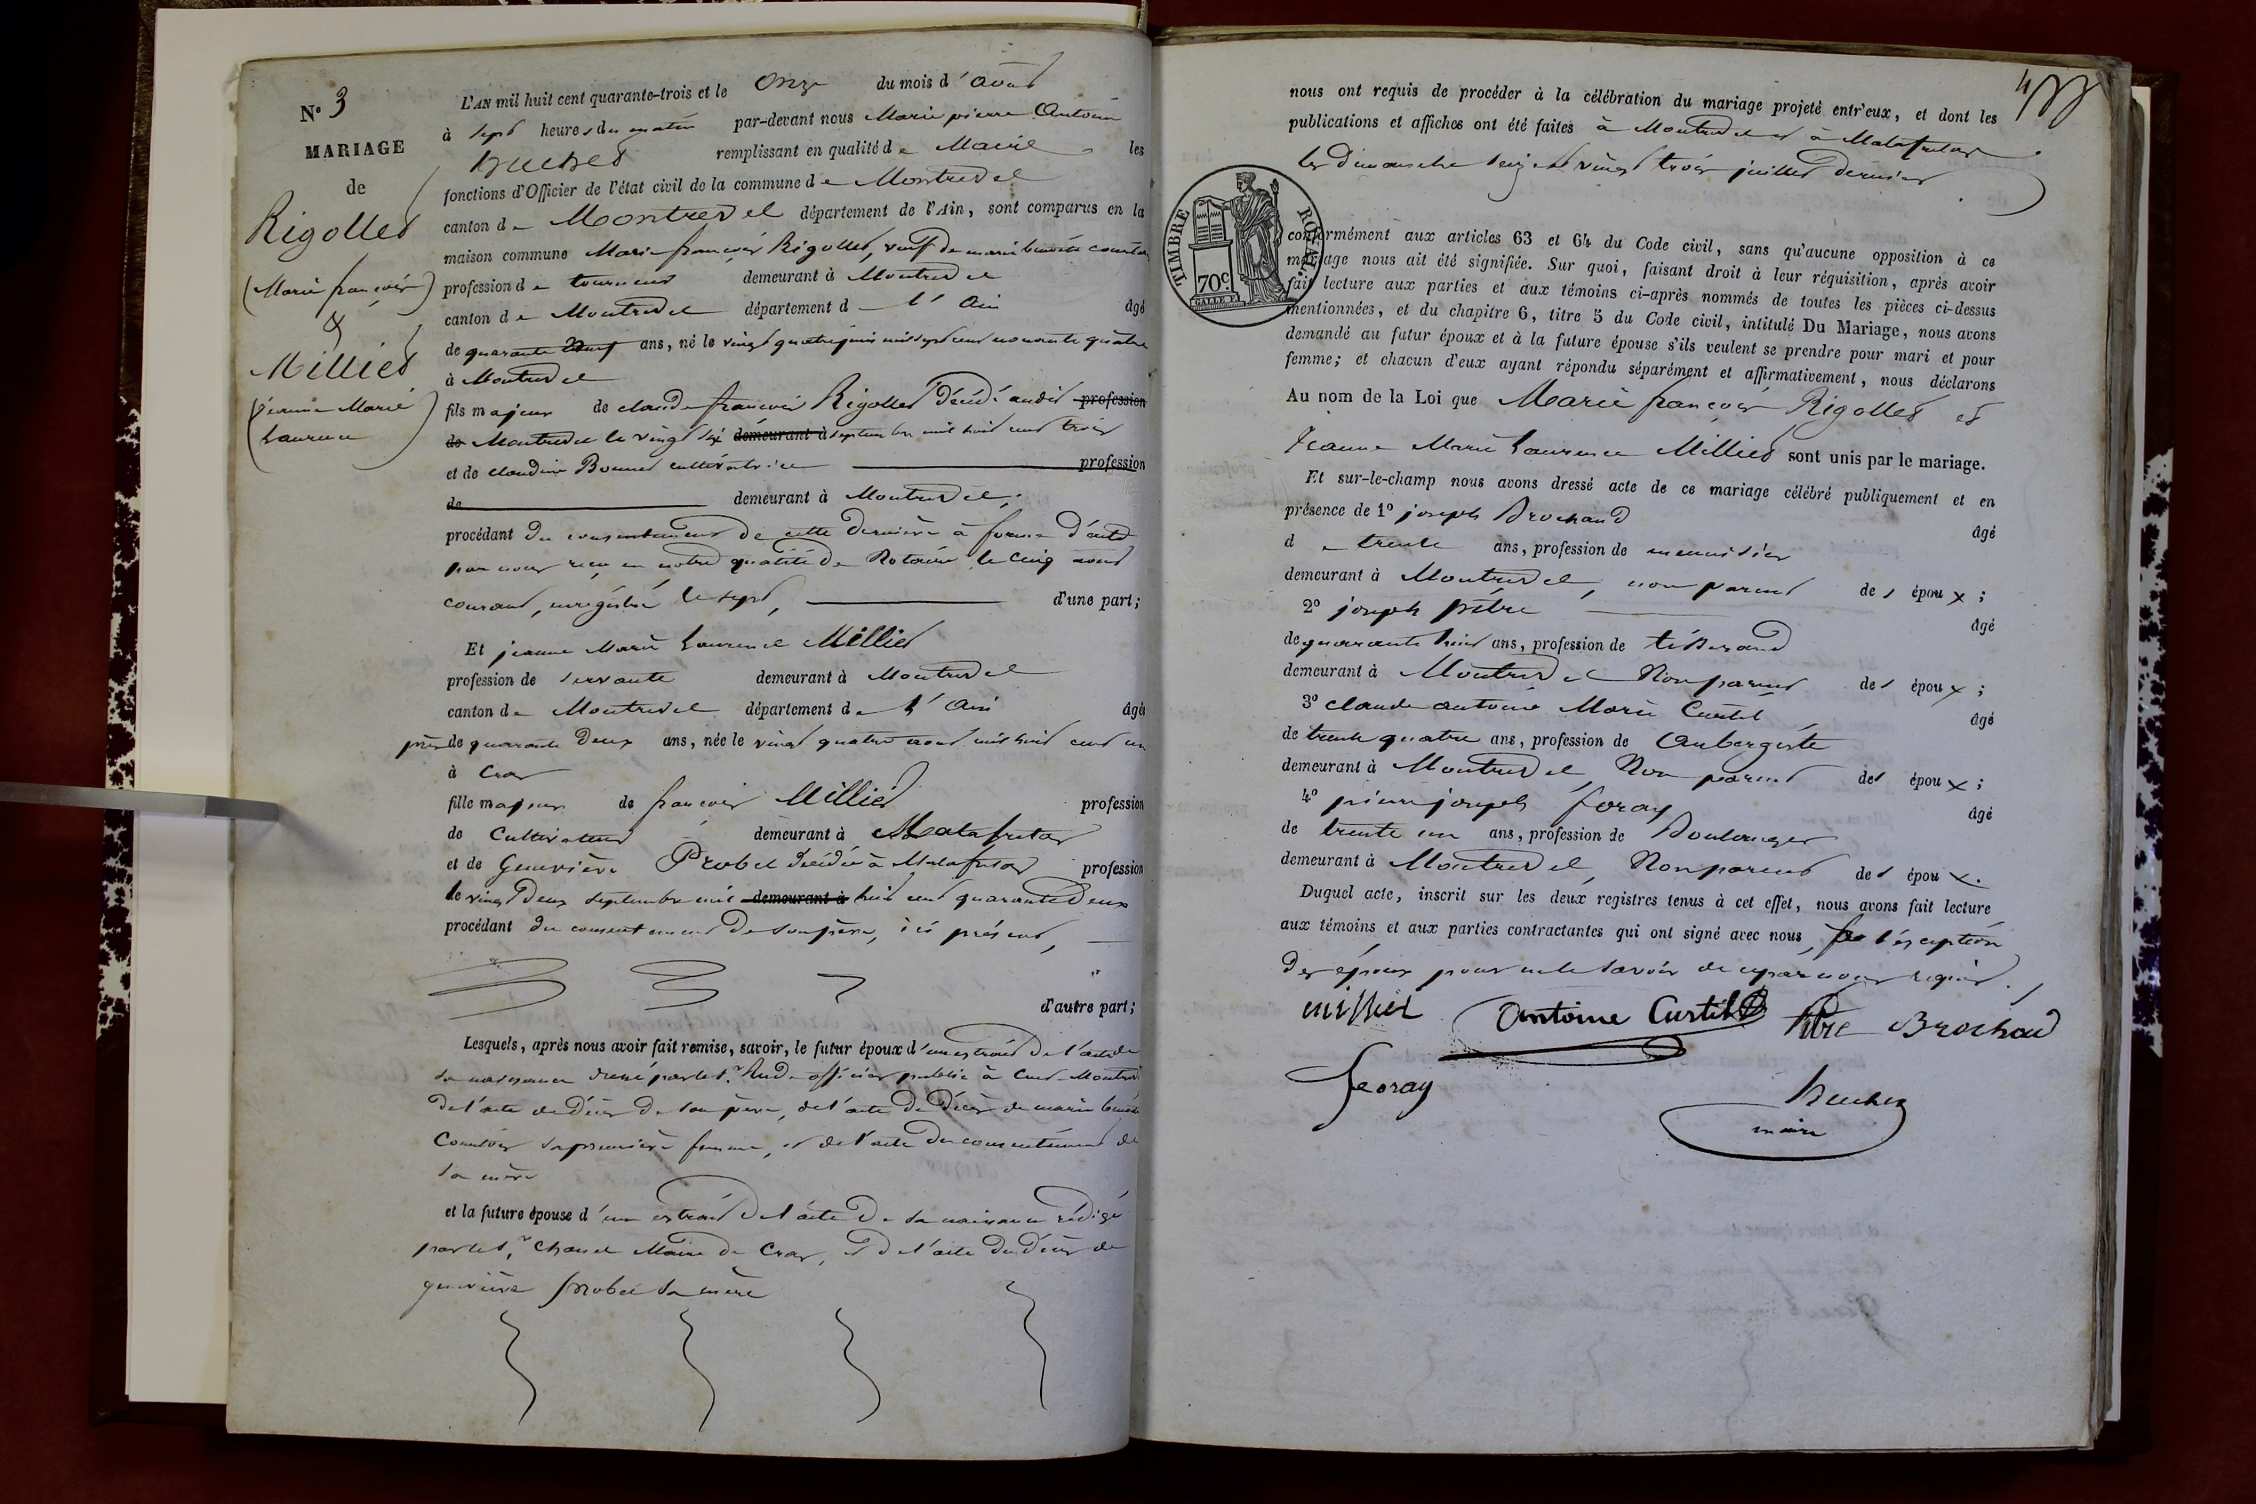 N° 3
MARIAGE
de
Rigollet
(Marie françois)
&
Milliet
(jeanne Marie
Laurence)
L'AN mil huit cent quarante-trois et le onze du mois d'août
à sept heures du matin par-devant nous Marie pierre Antoine
remplissant en qualité de Maire les
fonctions d'Officier de l'état civil de la commune de Montrevel
canton de Montrevel département de l'Ain, sont comparus en la
maison commune Marie françois Rigollet, veuf de marie benoite
profession de tourneur demeurant à Montrevel
canton de Montrevel département d l'Ain âgé
de quarante neuf ans, né le vingt quatre juin mil sept cent nonante quatre
à Montrevel
fils majeur de claude françois Rigollet décédé audit profession
de Montrevel le vingt six demeurant à septembre mil huit cent trois
et de claudine Bonnet cultivatrice profession
de demeurant à Montrevel,
procédant du consentement de cette dernière à forme d'acte
par nous reçu en notre qualité de Notaire le cinq août
courant, enregistré le sept, d'une part;
Et jeanne Marie Laurence Milliet
profession de servante demeurant à Montrevel
canton de Montrevel département de l'Ain âgée
près de quarante deux ans, née le vingt quatre août mil huit cent un
à Cras
fille majeure de françois Milliet profession
de Cultivateur demeurant à Malafretaz
et de Geneviève Probel décédée à Malafretaz profession
le vingt deux septembre mil demeurant à huit cent quarante deux
procédant du consentement de son père, ici présent,
d'autre part;
Lesquels, après nous avoir fait remise, savoir, le futur époux d'un extrait de l'acte de
sa naissance dressé par le s.r officier public à Montrevel
de l'acte de décès de son père, de l'acte de décès de marie benoite
sa première femme, et de l'acte du consentement de
sa mère
et la future épouse d'un extrait de l'acte de sa naissance rédigé
par le s.r Maire de Cras, et de l'acte de décès de
geneviève probel sa mère
nous ont requis de procéder à la célébration du mariage projeté entr'eux, et dont les
publications et affiches ont été faites à Montrevel et à Malafretaz
les dimanche seize et vingt trois juillet dernier
TIMBRE ROYAL
70c.
conformément aux articles 63 et 64 du Code civil, sans qu'aucune opposition à ce
mariage nous ait été signifiée. Sur quoi, faisant droit à leur réquisition, après avoir
fait lecture aux parties et aux témoins ci-après nommés de toutes les pièces ci-dessus
mentionnées, et du chapitre 6, titre 5 du Code civil, intitulé Du Mariage, nous avons
demandé au futur époux et à la future épouse s'ils veulent se prendre pour mari et pour
femme; et chacun d'eux ayant répondu séparément et affirmativement, nous déclarons
Au nom de la Loi que Marie françois Rigollet et
Jeanne Marie Laurence Milliet sont unis par le mariage.
Et sur-le-champ nous avons dressé acte de ce mariage célébré publiquement et en
présence de 1° joseph Brochand âgé
de trente ans, profession de menuisier
demeurant à Montrevel, non parent des époux;
2° joseph pitre âgé
de quarante huit ans, profession de tisserand
demeurant à Montrevel Non parent des époux;
3° claude antoine Marie Curtil âgé
de trente quatre ans, profession de Aubergiste
demeurant à Montrevel, Non parent des époux;
4° pierre joseph foray âgé
de trente un ans, profession de Boulanger
demeurant à Montrevel, Non parent des époux.
Duquel acte, inscrit sur les deux registres tenus à cet effet, nous avons fait lecture
aux témoins et aux parties contractantes qui ont signé avec nous, à l'exception
des époux pour ne le savoir de ce par nous requis.
millier Antoine Curtil Pitre Brochad
Feoray
maire